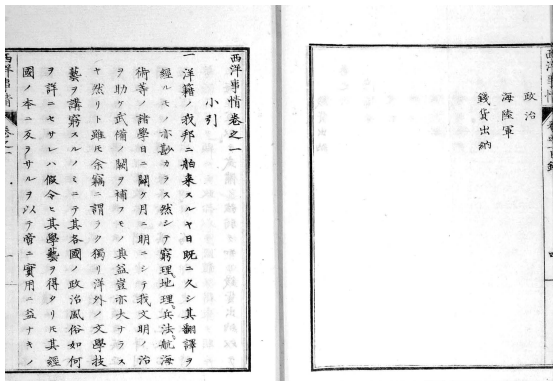 西洋事情
四
政治
海陸軍
錢貨出納
西洋事情卷之一
小引
一 洋籍ノ我邦ニ舶來スルヤ日既ニ久シ其翻譯ヲ
經ルモノ亦尠カラス然シテ窮理地理兵法航海
術等ノ諸學日ニ闢ケ月ニ明ニシテ我文明ノ治
ヲ助ケ武備ノ闕ヲ補フモノ其益豈亦大ナラス
ヤ然リト雖𪜈余竊ニ謂ラク獨リ洋外ノ文學技
藝ヲ講窮スルノミニテ其各國ノ政治風俗如何
ヲ詳ニセサレハ假令ヒ其學藝ヲ得タリ𪜈其經
國ノ本ニ反ラサルヲ以テ啻ニ實用ニ益ナキノ
西洋事情 卷之一 一